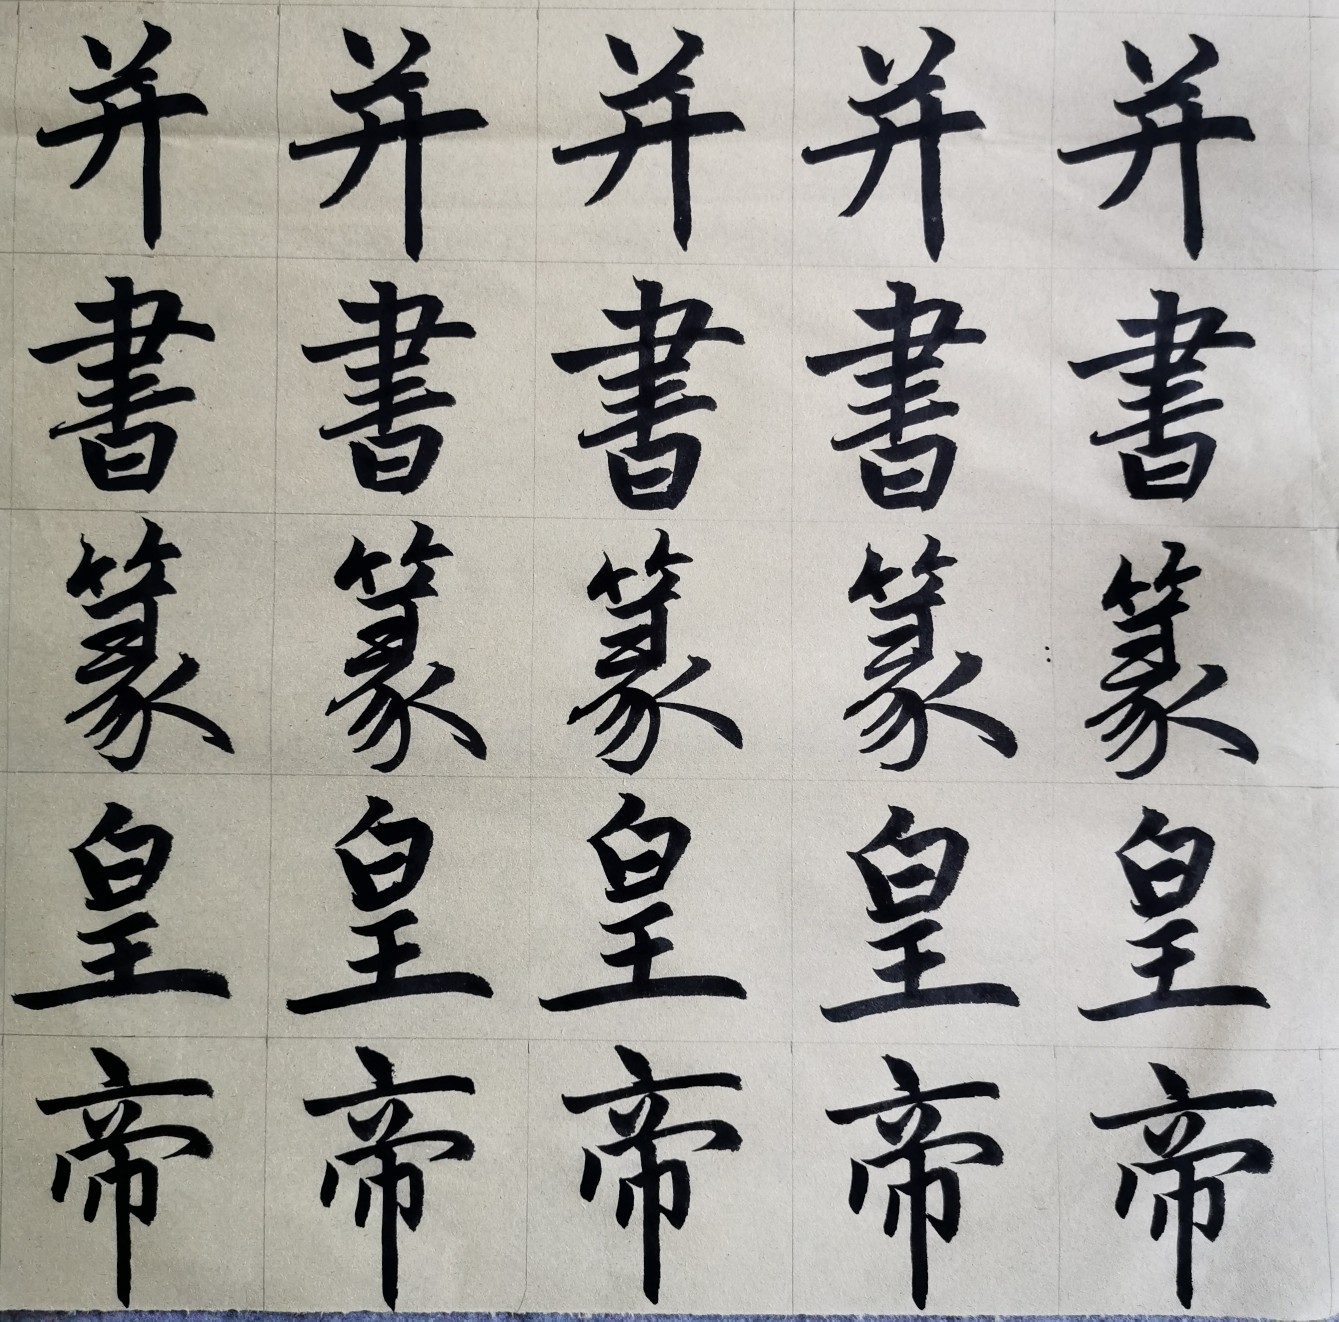 并并并并并
書書書書書
篆篆篆篆篆
皇皇皇皇皇
帝帝帝帝帝